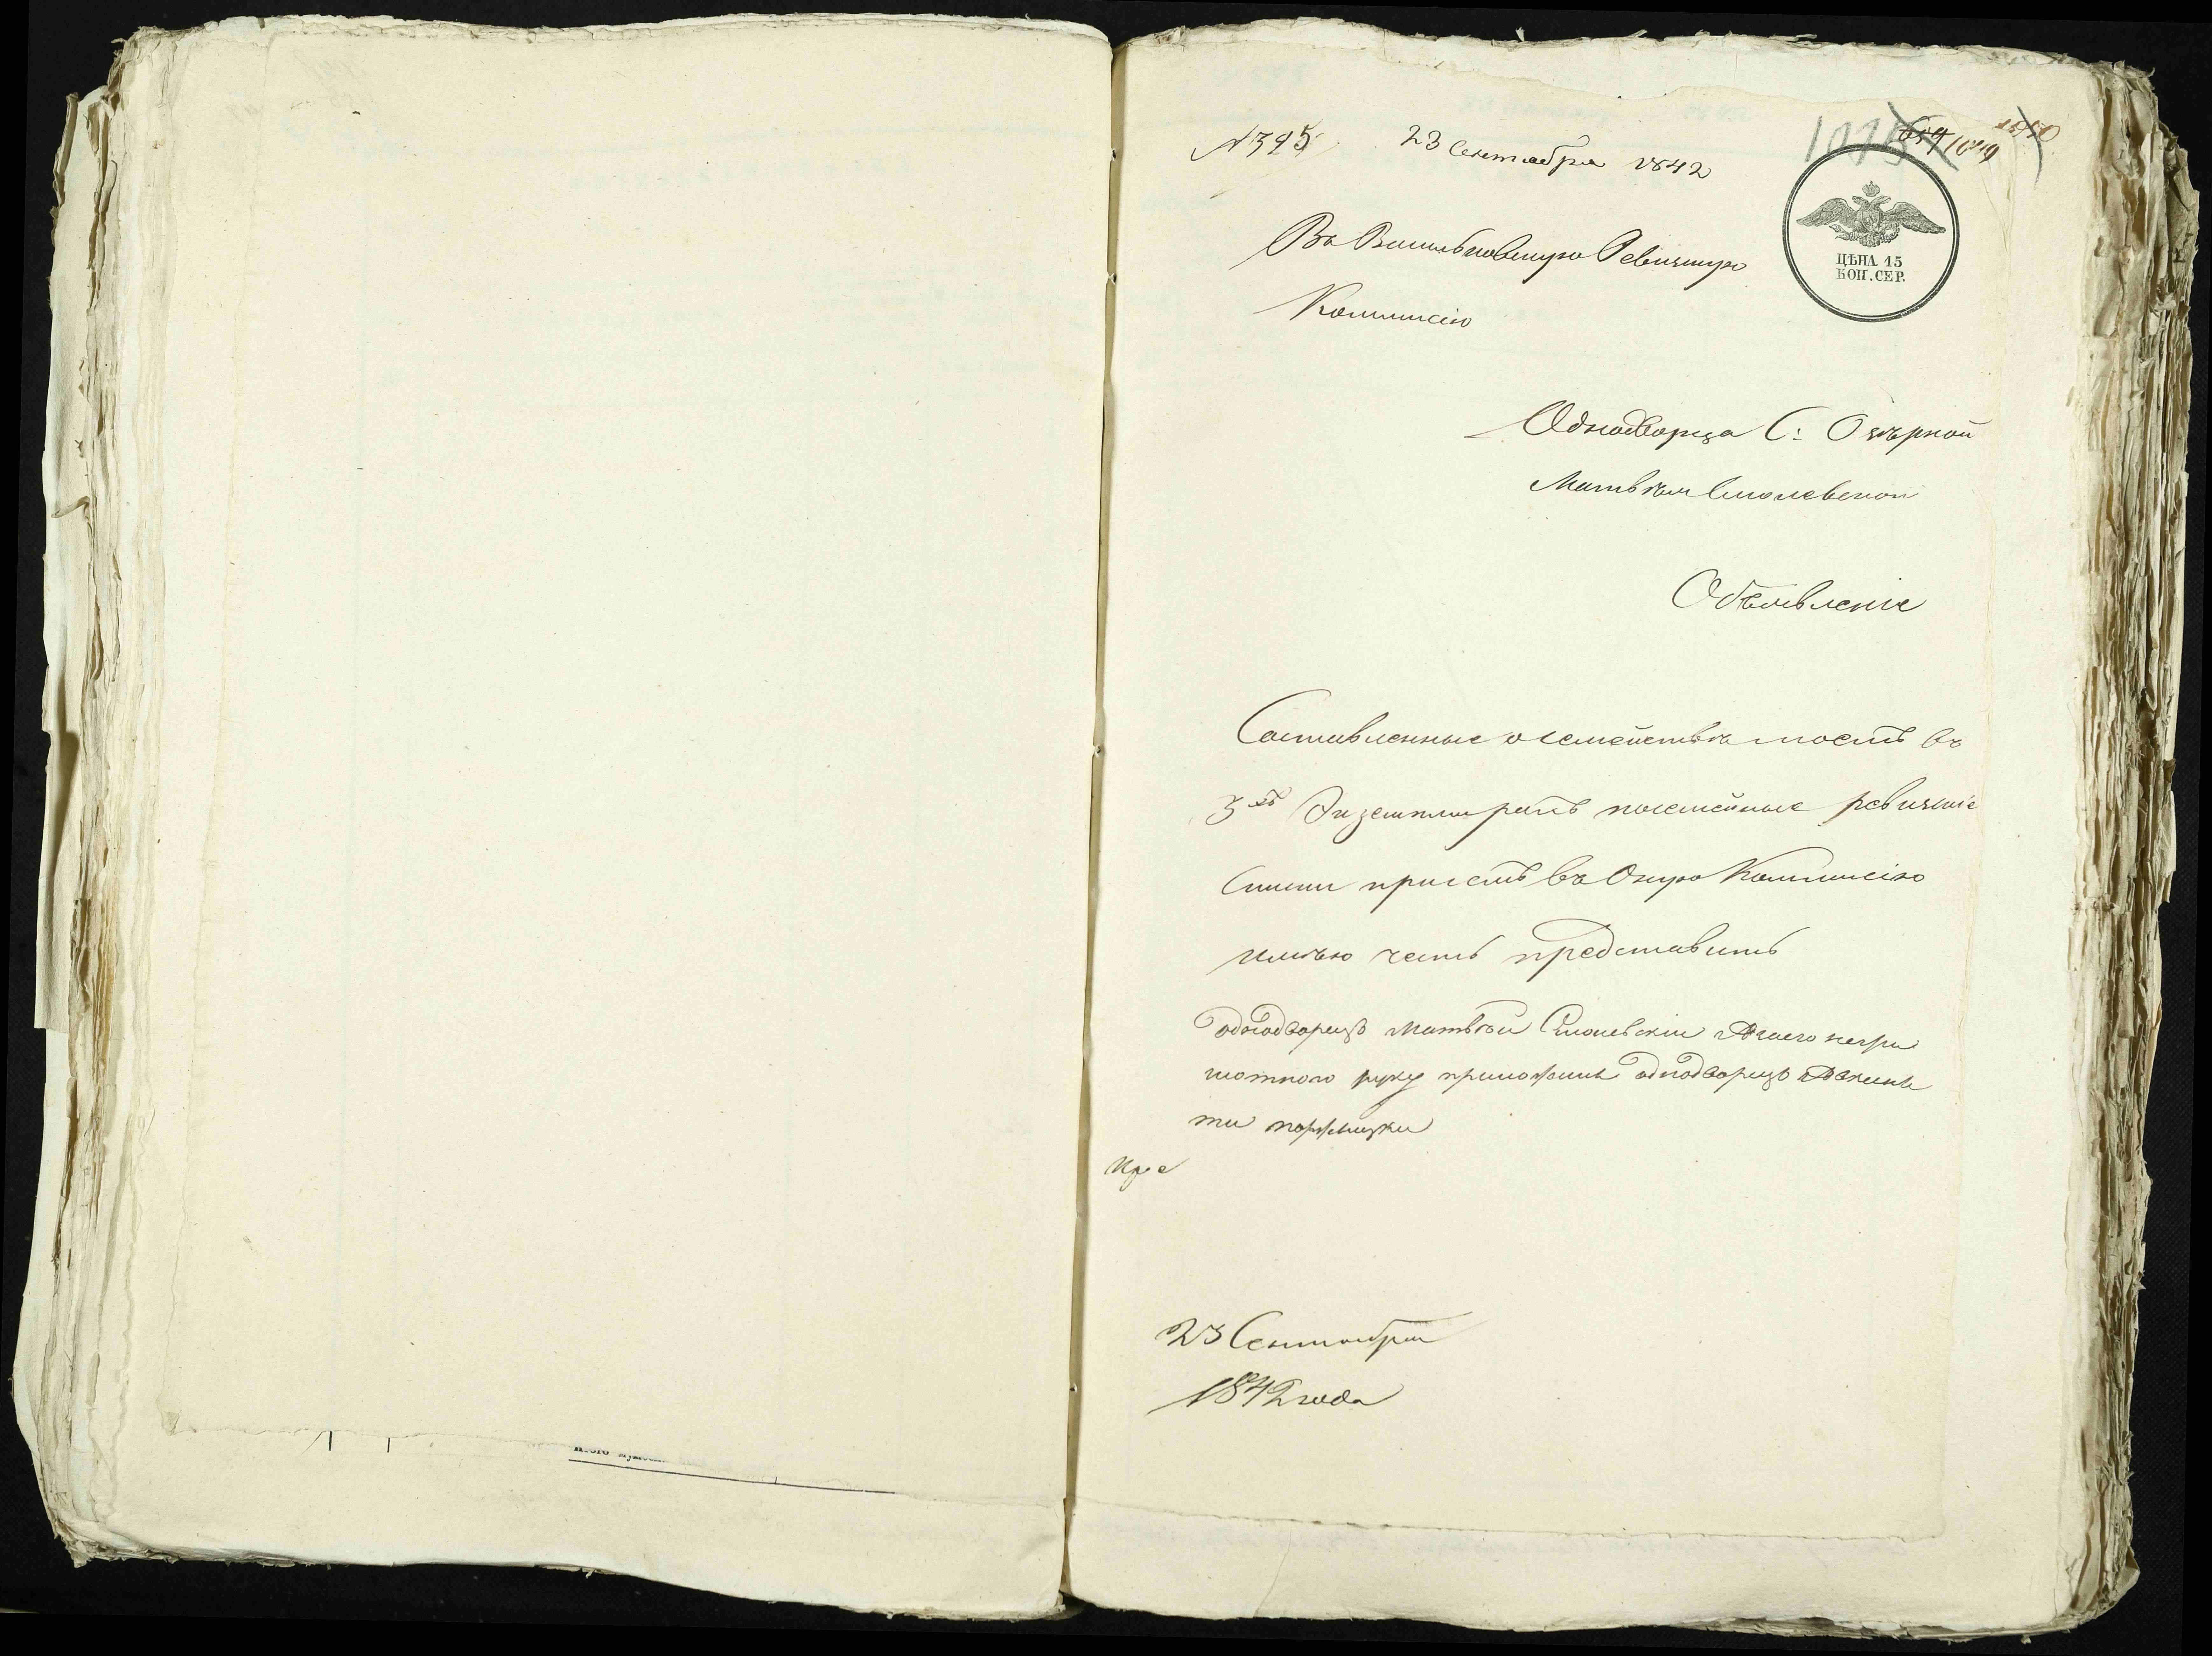 №395 23 Сентября 1842
1049
ЦѢНА 15
КОП. СЕР.
Въ Васильковскую Ревизкую
Коммисію
Однодворца С: Озѣрной
Матвѣя Смолевской
Объявленіе
Составленные о семействѣ моемъ въ
3хъ Экземплирахъ посемейные ревизкіе
Скизки при семъ въ Оную Коммисію
имѣю честь представить
однодворецъ Матвѣй Смолевскіи Аза его негра
мотного руку приложилъ однодворецъ
23 Сентября
1842 года